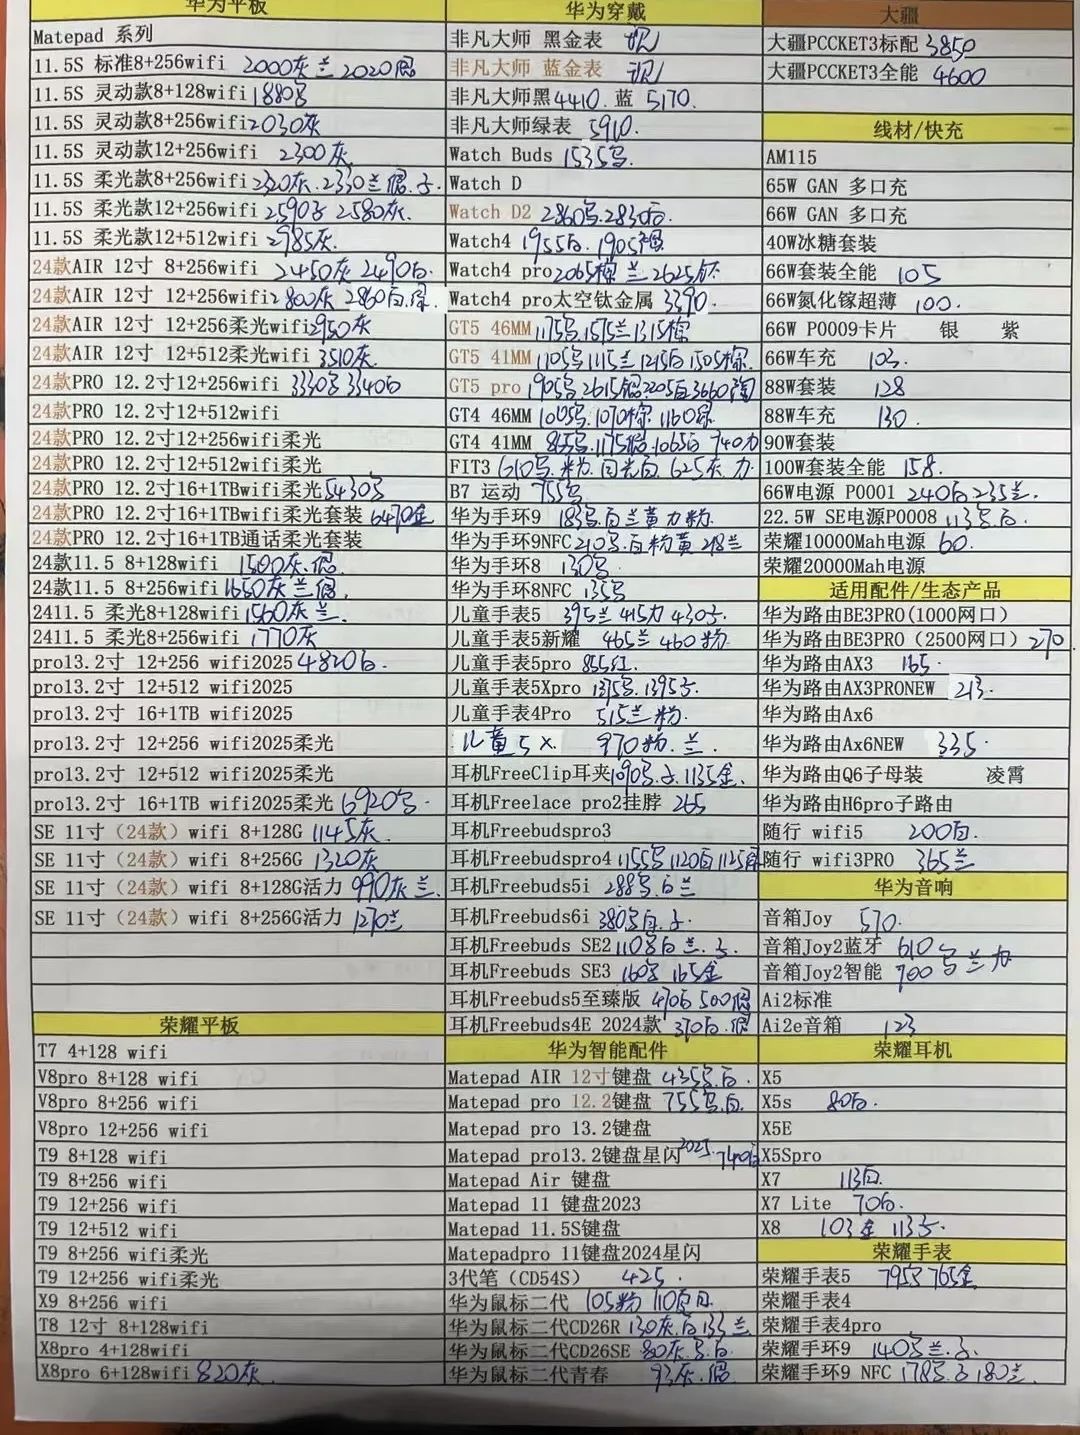 华为平板
Matepad 系列
11.5S 标准8+256wifi 2000灰兰2020
11.5S 灵动款8+128wifi 1880
11.5S 灵动款8+256wifi 2030灰
11.5S 灵动款12+256wifi 2300灰
11.5S 柔光款8+256wifi 2320灰.2330兰
11.5S 柔光款12+256wifi 2590 2580灰.
11.5S 柔光款12+512wifi 2985灰.
24款AIR 12寸 8+256wifi 2450灰 2490白.
24款AIR 12寸 12+256wifi 2800灰 2860白.绿.
24款AIR 12寸 12+256柔光wifi 2950灰
24款AIR 12寸 12+512柔光wifi 3510灰.
24款PRO 12.2寸12+256wifi 3330 3340白
24款PRO 12.2寸12+512wifi
24款PRO 12.2寸12+256wifi柔光
24款PRO 12.2寸12+512wifi柔光
24款PRO 12.2寸16+1TBwifi柔光 5430
24款PRO 12.2寸16+1TBwifi柔光套装 6470金
24款PRO 12.2寸16+1TB通话柔光套装
24款11.5 8+128wifi 1500灰.
24款11.5 8+256wifi 1650灰兰
2411.5 柔光8+128wifi 1560灰兰.
2411.5 柔光8+256wifi 1770灰
pro13.2寸 12+256 wifi2025 4820白.
pro13.2寸 12+512 wifi2025
pro13.2寸 16+1TB wifi2025
pro13.2寸 12+256 wifi2025柔光
pro13.2寸 12+512 wifi2025柔光
pro13.2寸 16+1TB wifi2025柔光 6920
SE 11寸（24款）wifi 8+128G 1145灰
SE 11寸（24款）wifi 8+256G 1320灰
SE 11寸（24款）wifi 8+128G活力 990灰兰.
SE 11寸（24款）wifi 8+256G活力 1270兰
荣耀平板
T7 4+128 wifi
V8pro 8+128 wifi
V8pro 8+256 wifi
V8pro 12+256 wifi
T9 8+128 wifi
T9 8+256 wifi
T9 12+256 wifi
T9 12+512 wifi
T9 8+256 wifi柔光
T9 12+256 wifi柔光
X9 8+256 wifi
T8 12寸 8+128wifi
X8pro 4+128wifi
X8pro 6+128wifi 820灰
华为穿戴
非凡大师 黑金表
非凡大师 蓝金表
非凡大师黑 4410. 蓝 5170.
非凡大师绿表 5910.
Watch Buds 1535
Watch D
Watch D2 2860.2830白.
Watch4 1955白.1905棕
Watch4 pro 2065棕 兰2625钛
Watch4 pro太空钛金属 3390.
GT5 46MM 1175.1575兰1315棕
GT5 41MM 1105 1115兰1215白1505棕.
GT5 pro 1905 2615 2205白3660陶
GT4 46MM 1005.1070棕 1160绿
GT4 41MM 865.1175.1065白 740
FIT3 610.粉. 白 625灰
B7 运动 755
华为手环9 183.白兰黄 粉.
华为手环9NFC 210.白粉黄 218兰
华为手环8 130
华为手环8NFC 135
儿童手表5 395兰 415 430
儿童手表5新耀 465兰 460粉
儿童手表5pro 855红.
儿童手表5Xpro 1375.1395
儿童手表4Pro 515兰粉.
儿童5X. 970粉.兰.
耳机FreeClip耳夹 1090. 1135金.
耳机Freelace pro2挂脖 265
耳机Freebudspro3
耳机Freebudspro4 1155 1120白1125
耳机Freebuds5i 288.白兰
耳机Freebuds6i 380
耳机Freebuds SE2 110 白兰.
耳机Freebuds SE3 160 165金
耳机Freebuds5至臻版 470白 500
耳机Freebuds4E 2024款 370白.
华为智能配件
Matepad AIR 12寸键盘 435.白.
Matepad pro 12.2键盘 755.白.
Matepad pro 13.2键盘
Matepad pro13.2键盘星闪 2025. 740白
Matepad Air 键盘
Matepad 11 键盘2023
Matepad 11.5S键盘
Matepadpro 11键盘2024星闪
3代笔（CD54S） 425.
华为鼠标二代 105粉 110
华为鼠标二代CD26R 130灰.白133兰
华为鼠标二代CD26SE 80灰.白
华为鼠标二代青春 93灰.
大疆
大疆PCCKET3标配 3850
大疆PCCKET3全能 4600
线材/快充
AM115
65W GAN 多口充
66W GAN 多口充
40W冰糖套装
66W套装全能 105
66W氮化镓超薄 100.
66W P0009卡片 银 紫
66W车充 103.
88W套装 128
88W车充 130.
90W套装
100W套装全能 158.
66W电源 P0001 240白235兰.
22.5W SE电源P0008 113.白.
荣耀10000Mah电源 60.
荣耀20000Mah电源
适用配件/生态产品
华为路由BE3PRO(1000网口)
华为路由BE3PRO（2500网口）270
华为路由AX3 165.
华为路由AX3PRONEW 213.
华为路由Ax6
华为路由Ax6NEW 335.
华为路由Q6子母装 凌霄
华为路由H6pro子路由
随行 wifi5 200白.
随行 wifi3PRO 365兰
华为音响
音箱Joy 570.
音箱Joy2蓝牙 610
音箱Joy2智能 700
Ai2标准
Ai2e音箱 123
荣耀耳机
X5
X5s 80白.
X5E
X5Spro
X7 113白.
X7 Lite 70白.
X8 103金 113
荣耀手表
荣耀手表5 795 765金
荣耀手表4
荣耀手表4pro
荣耀手环9 140 兰.
荣耀手环9 NFC 178 180兰.